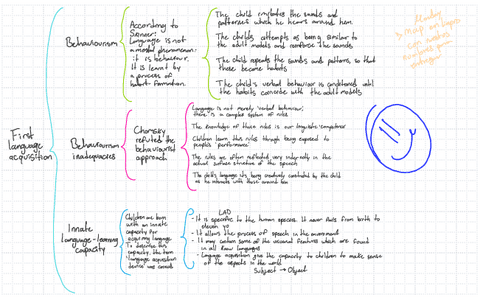 First
language
acquisition
Behaviourism
According to
Skinner:
Language is not
a mental phenomenon:
it is behaviour.
It is learnt by
a process of
habit-formation.
The child imitates the sounds and
patterns which he hears around him.
The child's attempts as being similar to
the adult models and reinforce the sounds
The child repeats the sounds and patterns, so that
these become habits
The child's verbal behaviour is conditioned until
the habits coincide with the adult models
Behaviourism
inadequacies
Chomsky
refuted the
behaviourist
approach
Language is not merely 'verbal behaviour',
there is a complex system of rules
The knowledge of these rules is our linguistic 'competence'
Children learn this rules through being exposed to
people's 'performance'
The rules are often reflected very indirectly in the
actual surface structure of the speech
The child's language is being creatively constructed by the child
as he interacts with those around him
Innate
language-learning
capacity
Children are born
with an innate
capacity for
acquiring language
To describe this
capacity, the term
'language acquisition
device' was coined
LAD
- It is specific to the human species. It runs from birth to
eleven yo
- It allows the process of speech in the environment
- It may contain some of the universal features which are found
in all known languages
- Language acquisition give the capacity to children to make sense
of the aspects in the world
Subject → Object